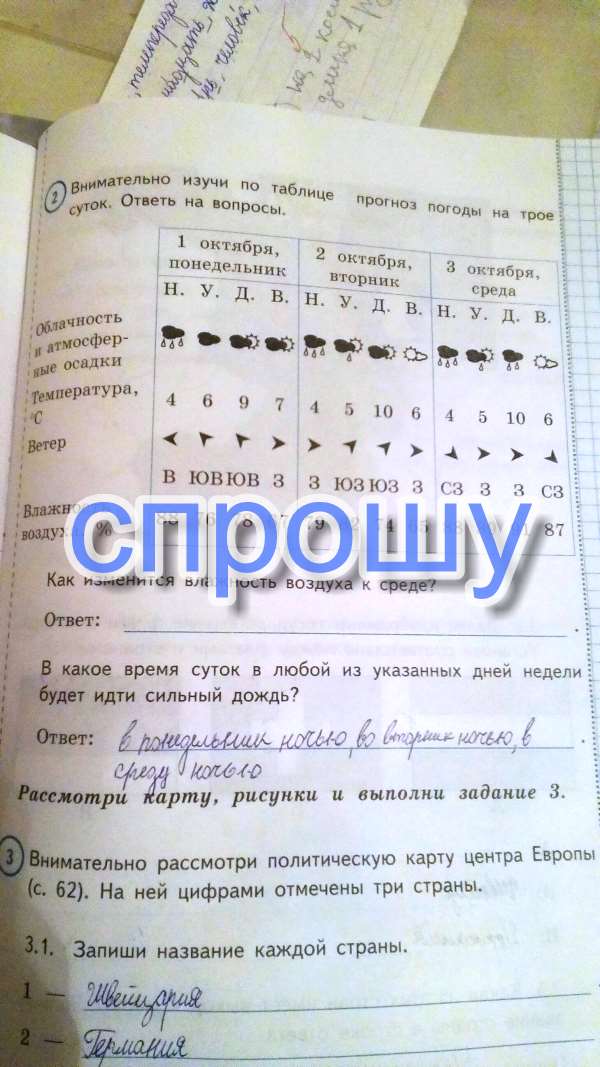 , температура
надцать,
, человек,
на 2
длина 1
2 Внимательно изучи по таблице прогноз погоды на трое
суток. Ответь на вопросы.
1 октября, 2 октября, 3 октября,
понедельник вторник среда
Н. У. Д. В. Н. У. Д. В. Н. У. Д. В.
Облачность
и атмосфер-
ные осадки
Температура,
°С
4 6 9 7 4 5 10 6 4 5 10 6
Ветер
В ЮВ ЮВ З З ЮЗ ЮЗ З СЗ З З СЗ
Влажность
воздуха, % 76 74 87
спрошу
Как изменится влажность воздуха к среде?
Ответ:
В какое время суток в любой из указанных дней недели
будет идти сильный дождь?
Ответ: в понедельник ночью, во вторник ночью, в
среду ночью
Рассмотри карту, рисунки и выполни задание 3.
3 Внимательно рассмотри политическую карту центра Европы
(с. 62). На ней цифрами отмечены три страны.
3.1. Запиши название каждой страны.
1 — Швейцария
2 — Германия